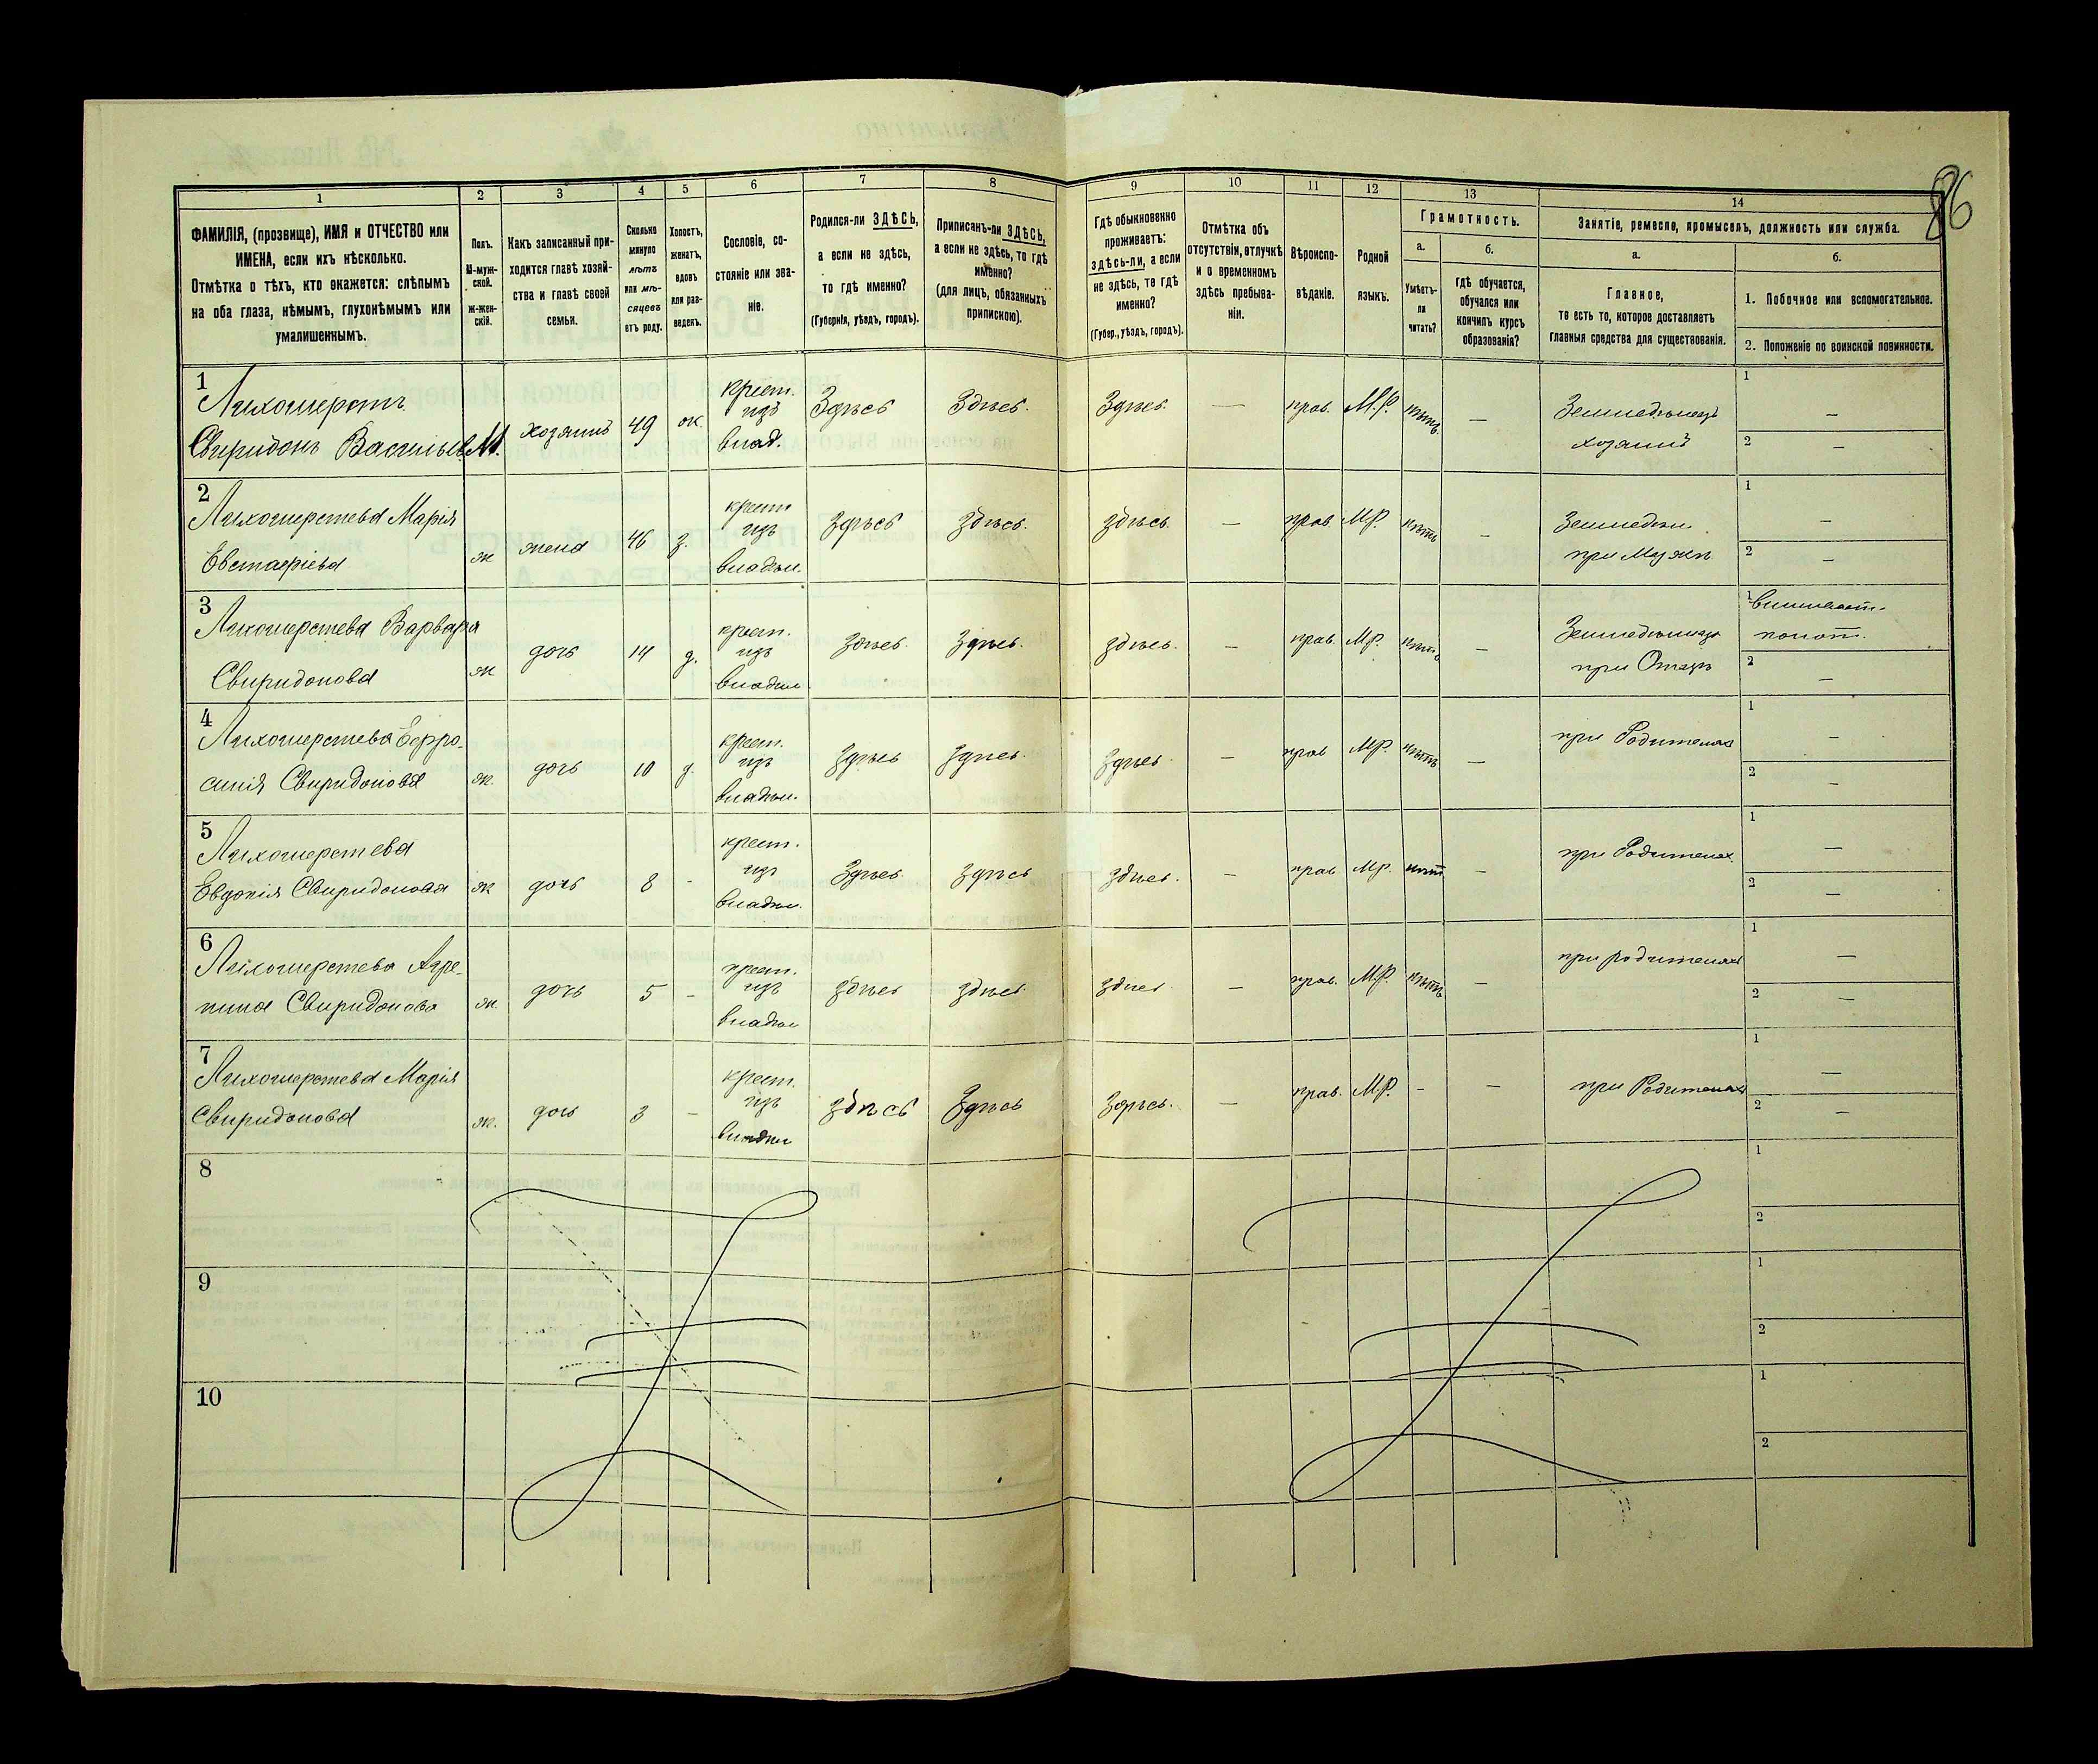 86
1 2 3 4 5 6 7 8 9 10 11 12 13 14
ФАМИЛІЯ, (прозвище), ИМЯ и ОТЧЕСТВО или
ИМЕНА, если ихъ нѣсколько.
Отмѣтка о тѣхъ, кто окажется: слѣпымъ
на оба глаза, нѣмымъ, глухонѣмымъ или
умалишеннымъ.
Полъ.
М-муж-
ской.
Ж-жен-
скій.
Какъ записанный при-
ходится главѣ хозяй-
ства и главѣ своей
семьи.
Сколько
минуло
лѣтъ
или мѣ-
сяцевъ
отъ роду.
Холостъ,
женатъ,
вдовъ
или раз-
веденъ.
Сословіе, со-
стояніе или зва-
ніе.
Родился-ли ЗДѢСЬ,
а если не здѣсь,
то гдѣ именно?
(Губернія, уѣздъ, городъ).
Приписанъ-ли ЗДѢСЬ,
а если не здѣсь, то гдѣ
именно?
(для лицъ, обязанныхъ
припискою).
Гдѣ обыкновенно
проживаетъ:
здѣсь-ли, а если
не здѣсь, то гдѣ
именно?
(Губер., уѣздъ, городъ).
Отмѣтка объ
отсутствіи, отлучкѣ
и о временномъ
здѣсь пребыва-
ніи.
Вѣроиспо-
вѣданіе.
Родной
языкъ.
Грамотность.
а.
Умѣетъ-
ли
читать?
б.
Гдѣ обучается,
обучался или
кончилъ курсъ
образованія?
Занятіе, ремесло, промыселъ, должность или служба.
а.
Главное,
то есть то, которое доставляетъ
главныя средства для существованія.
б.
1. Побочное или вспомогательное.
2. Положеніе по воинской повинности.
1
Лихошерстъ
Свиридонъ Васильев. М. хозяинъ 49 ж.
крест.
изъ
влад.
Здѣсь Здѣсь. Здѣсь. — прав. М.Р. нѣтъ —
Земледѣлецъ
хозяинъ
1 —
2 —
2
Лихошерстева Марія
Евстафіева ж жена 46 з.
крест
изъ
владѣл.
Здѣсь здѣсь. здѣсь. — прав М.Р. нѣтъ —
при Мужѣ
1 —
2 —
3
Лихошерстева Варвара
Свиридонова ж дочь 14 д.
крест.
изъ
владѣл
Здѣсь. Здѣсь. здѣсь. — прав. М.Р. нѣтъ —
при Отцѣ
1
2 —
4
Лихошерстева Ефро-
синія Свиридонова ж. дочь 10 д.
крест.
изъ
владѣл.
Здѣсь Здѣсь. Здѣсь — прав М.Р. нѣтъ —
при Родителях
1 —
2 —
5
Лихошерстева
Евдокія Свиридонова ж дочь 8 -
крест.
изъ
владѣл.
Здѣсь Здѣсь здѣсь. — прав М.Р. нѣт —
при Родителях.
1 —
2 —
6
Лихошерстева Агре-
пина Свиридонова ж. дочь 5 —
крест.
изъ
владѣл
здѣсь здѣсь здѣсь — прав. М.Р. нѣтъ —
при родителяхъ
1 —
2 —
7
Лихошерстева Марія
Свиридонова ж. дочь 3 —
крест.
изъ
владѣл
здѣсь Здѣсь Здѣсь. — прав. М.Р. - —
при Родителяхъ
1 —
2 —
8
1
2
9
1
2
10
1
2